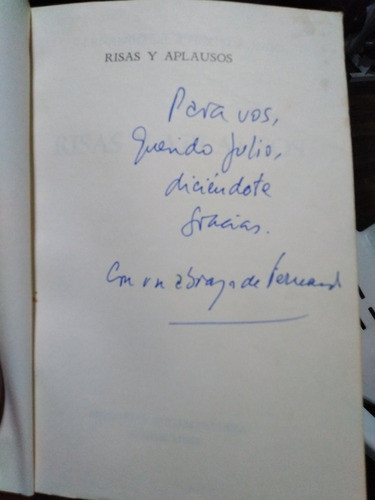 RISAS Y APLAUSOS
Para vos,
Querido Julio,
diciéndote
Gracias.
Con un abrazo de Fernando